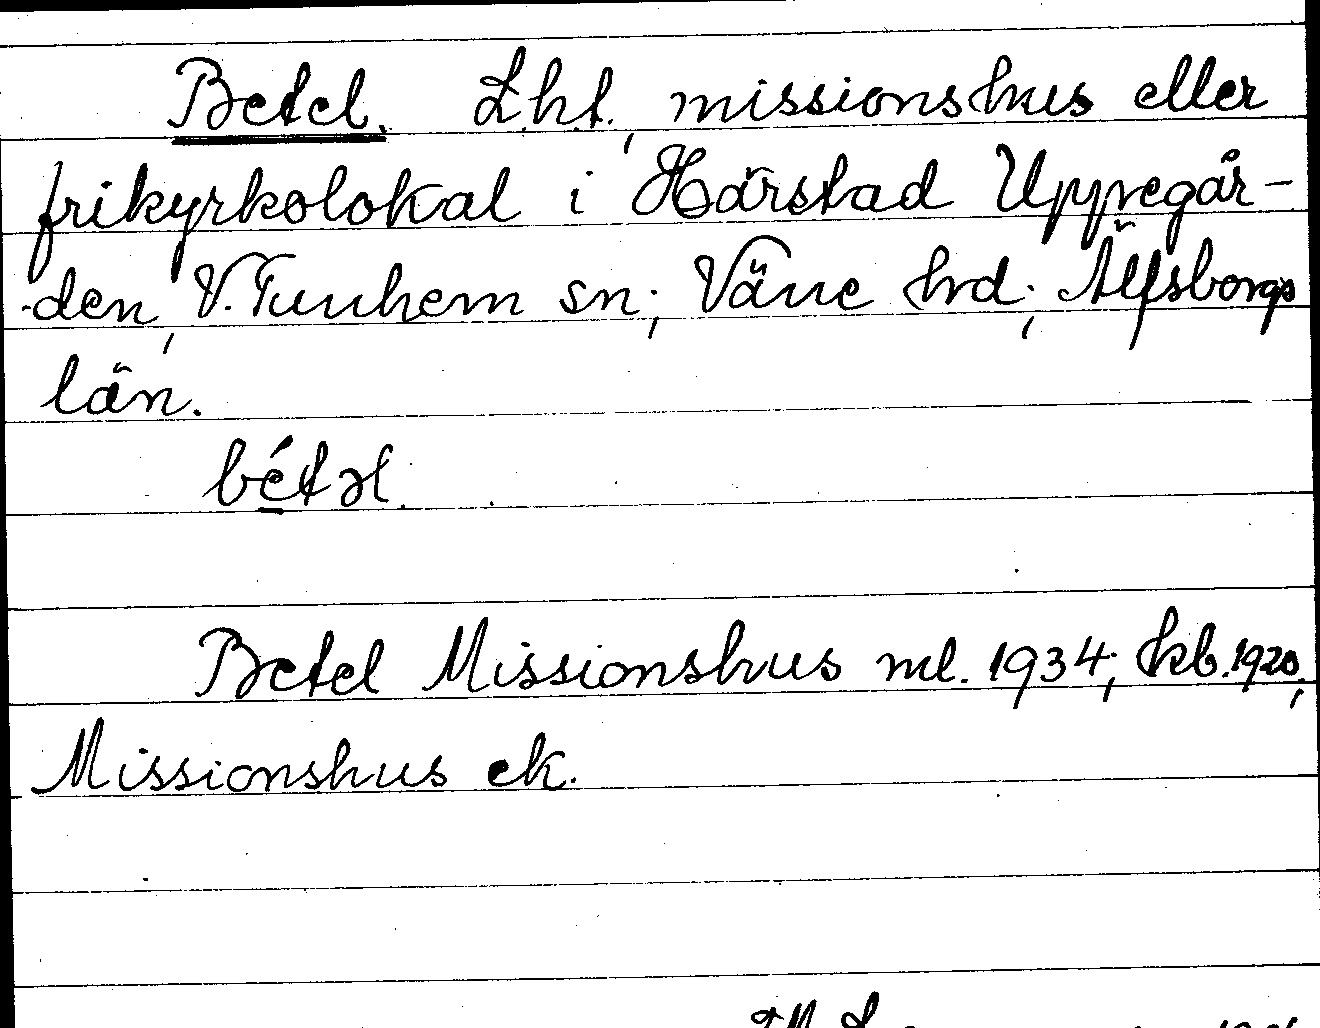 Betel. Lht., missionshus eller
frikyrkolokal i Härstad Uppegår-
den, V. Tunhem sn; Väne hrd; Älfsborgs
län.
bétəl.
Betel Missionshus ml. 1934; kb. 1920;
Missionshus ek.